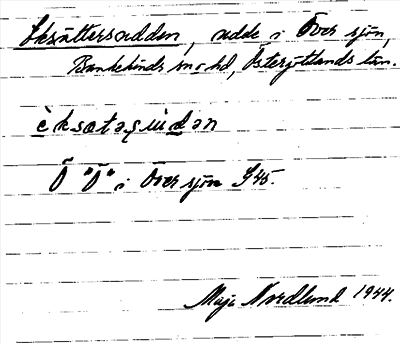 Eksättersudden, udde i Över sjön,
Bankekinds sn o hd, Östergötlands län.
è̀ksætəʂùdən
Ö "Ö" i Över sjön S45.
Maja Nordlund 1944.